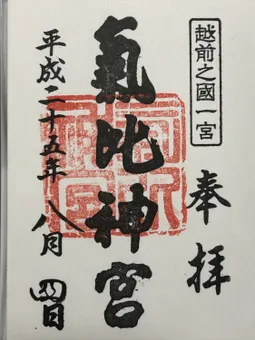 越前之國一宮
奉拝
氣比神宮
平成二十五年八月四日